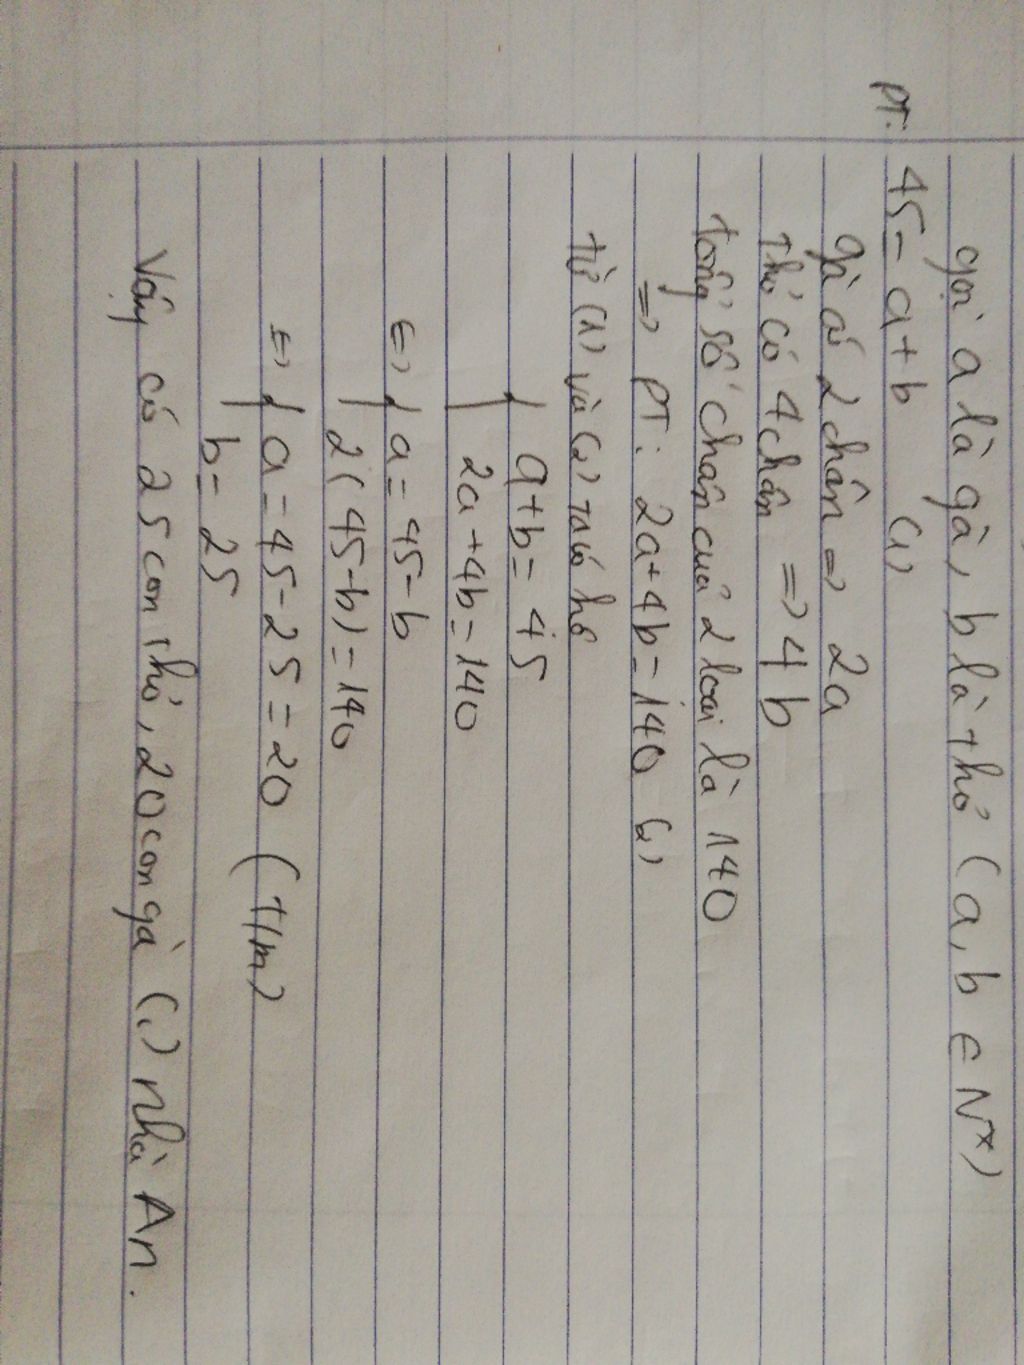 gọi a là gà, b là thỏ (a, b ∈ N*)
PT: 45 = a + b (1)
gà có 2 chân => 2a
thỏ có 4 chân => 4b
tổng số chân của 2 loại là 140
=> PT: 2a + 4b = 140 (2)
từ (1) và (2) ta có hệ
{ a + b = 45
2a + 4b = 140
<=> { a = 45 - b
2(45 - b) = 140
<=> { a = 45 - 25 = 20 (t/m)
b = 25
Vậy có 25 con thỏ, 20 con gà (ở) nhà An.